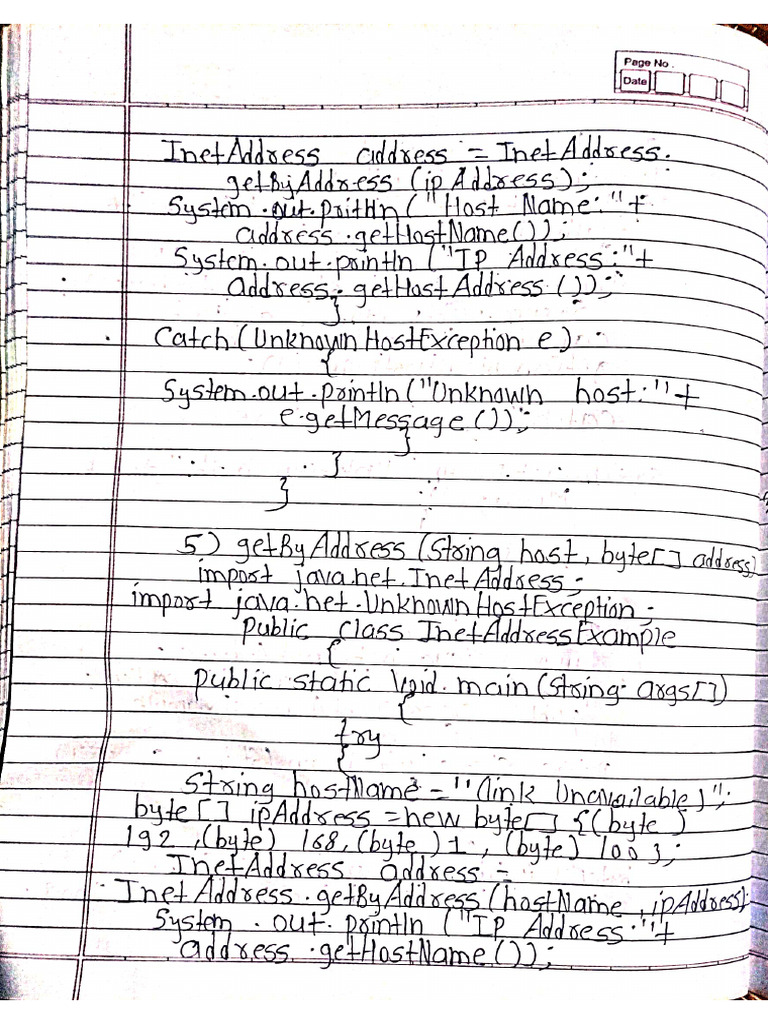 Page No.
Date
InetAddress address = InetAddress.
getByAddress (ipAddress);
System.out.println ("Host Name:"+
address.getHostName());
System.out.println ("IP Address:"+
address.getHostAddress());
}
Catch (UnknownHostException e)
{
System.out.println ("Unknown host:"+
e.getMessage());
}
}
}
5) getByAddress (String host, byte[] address)
import java.net.InetAddress;
import java.net.UnknownHostException;
public class InetAddressExample
{
public static void main (String args[])
{
try
{
String hostName = "(link Unavailable)";
byte[] ipAddress = new byte[] {(byte)
192, (byte) 168, (byte) 1, (byte) 100};
InetAddress address =
InetAddress.getByAddress (hostName, ipAddress);
System.out.println ("IP Address:"+
address.getHostName());